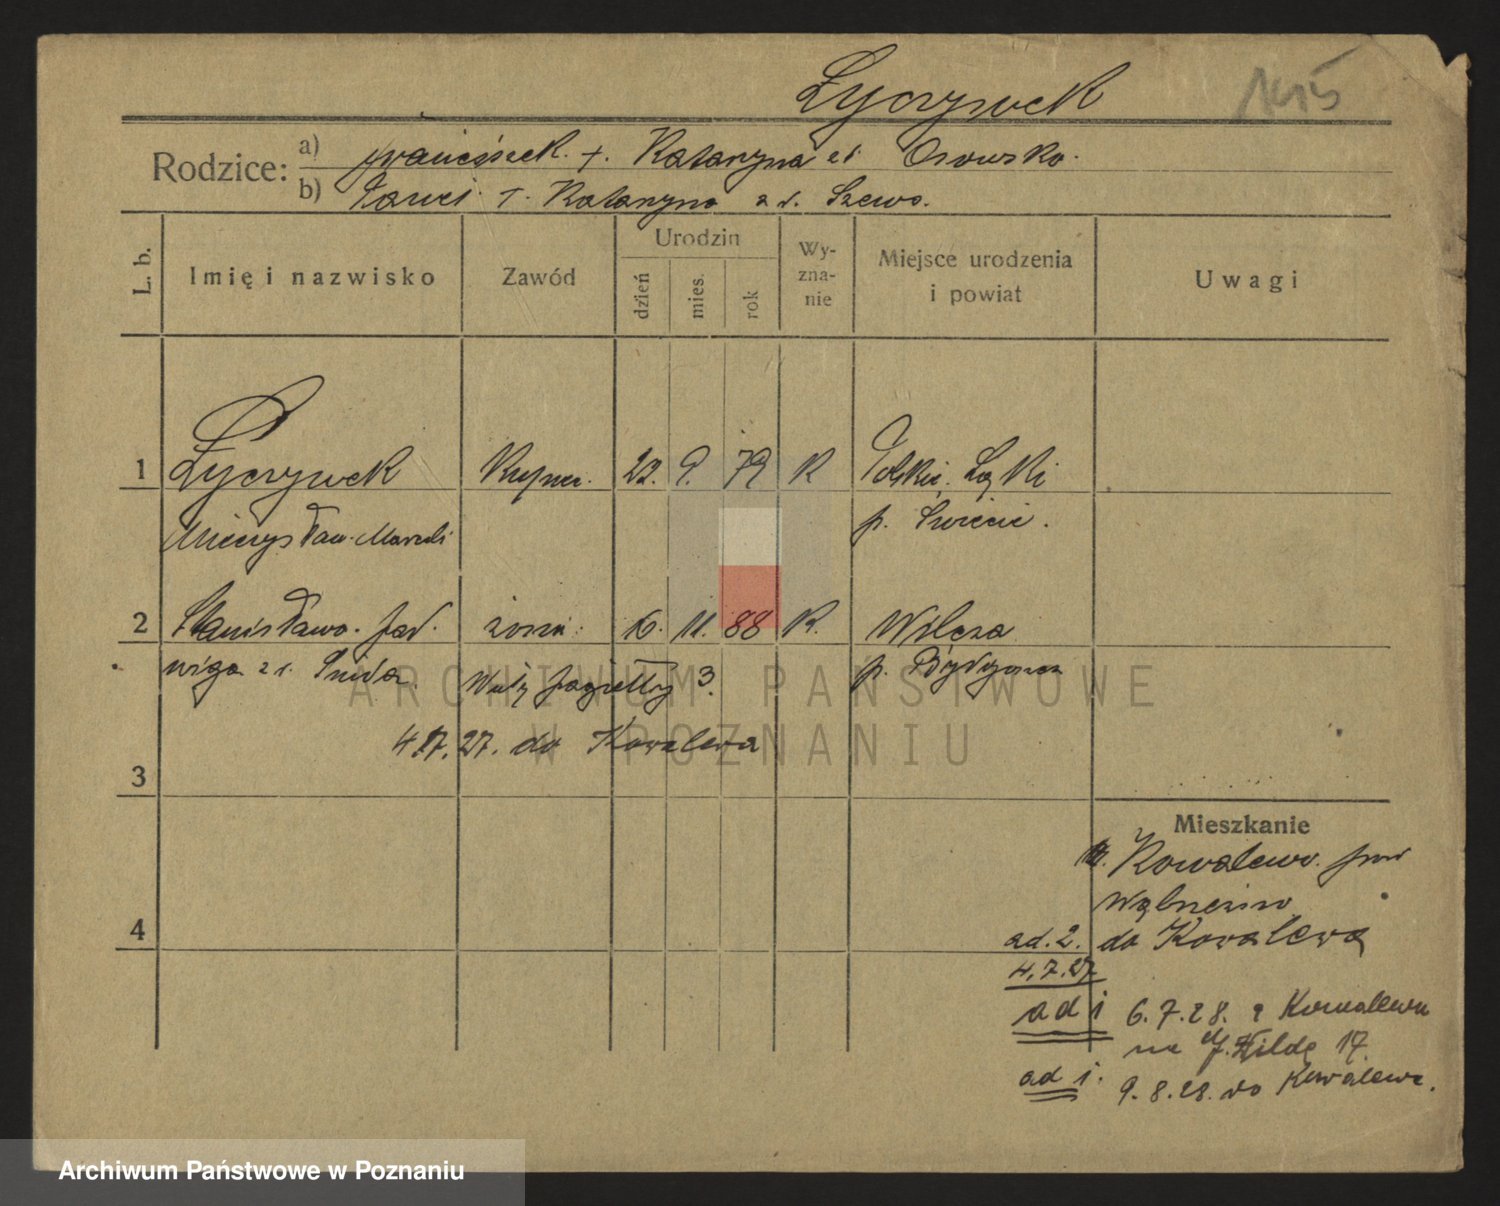 Łyczywek 1415
Rodzice: a) Franciszek. †. Katarzyna zd. Osowska.
b) Paweł †. Katarzyna z d. Szewa.
L. b. Imię i nazwisko Zawód Urodzin dzień mies. rok Wy-zna-nie Miejsce urodzenia i powiat Uwagi
1 Łyczywek Kupiec. 22. 9. 79 K Polskie. Łąki
Mieczysław. Marceli p. Świecie.
2 Stanisława. Jad. żona. 6. 11. 88 K. Wilcza
wiga z d. p. Bydgoszcz
Wały Jagiełły 3.
4.7.27. do Kowalewa
3
Mieszkanie
Kowalewo. pow
Wąbrzeźno
4
ad. 2. do Kowalewa
4.7.27
ad 1 6.7.28. z Kowalewa
na Wildę 17.
ad 1. 9.8.28. do Kowalewa.
ARCHIWUM PAŃSTWOWE
W POZNANIU
Archiwum Państwowe w Poznaniu